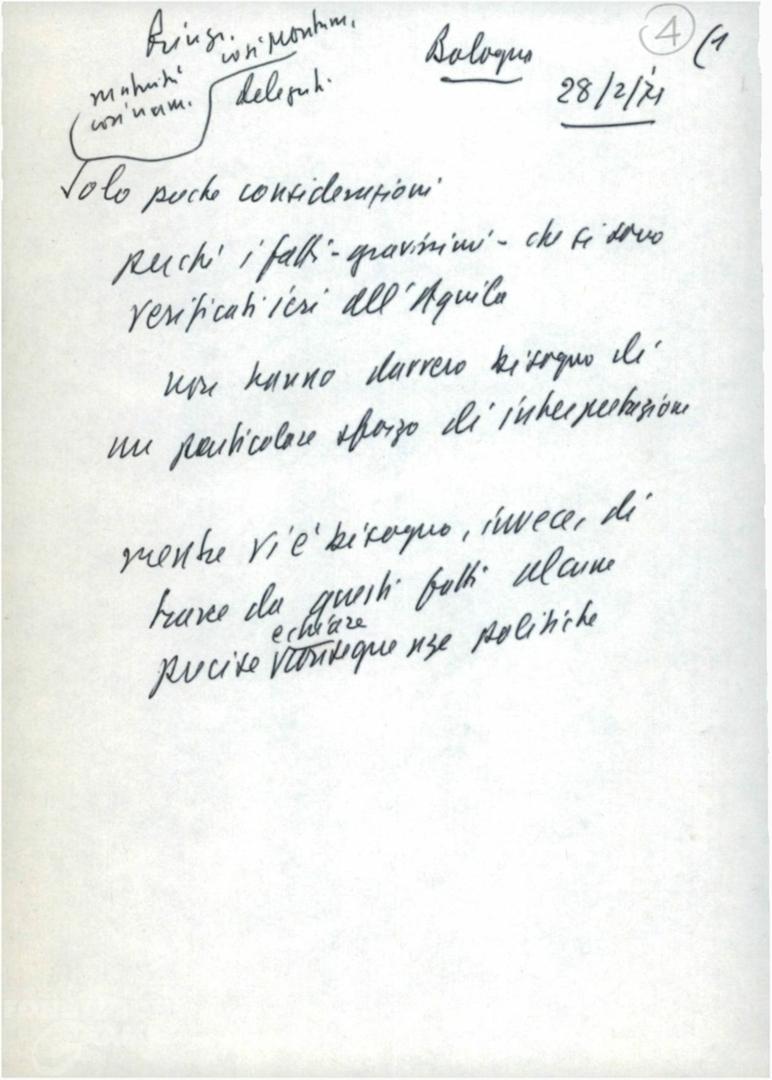 Bologna
4 (1
28/2/71
Delegati.
Solo poche considerazioni
perché i fatti - gravissimi - che si sono
verificati ieri all'Aquila
non hanno davvero bisogno di
un particolare sforzo di interpretazione
mentre vi è bisogno, invece, di
trarre da questi fatti alcune
e chiare
precise conseguenze politiche